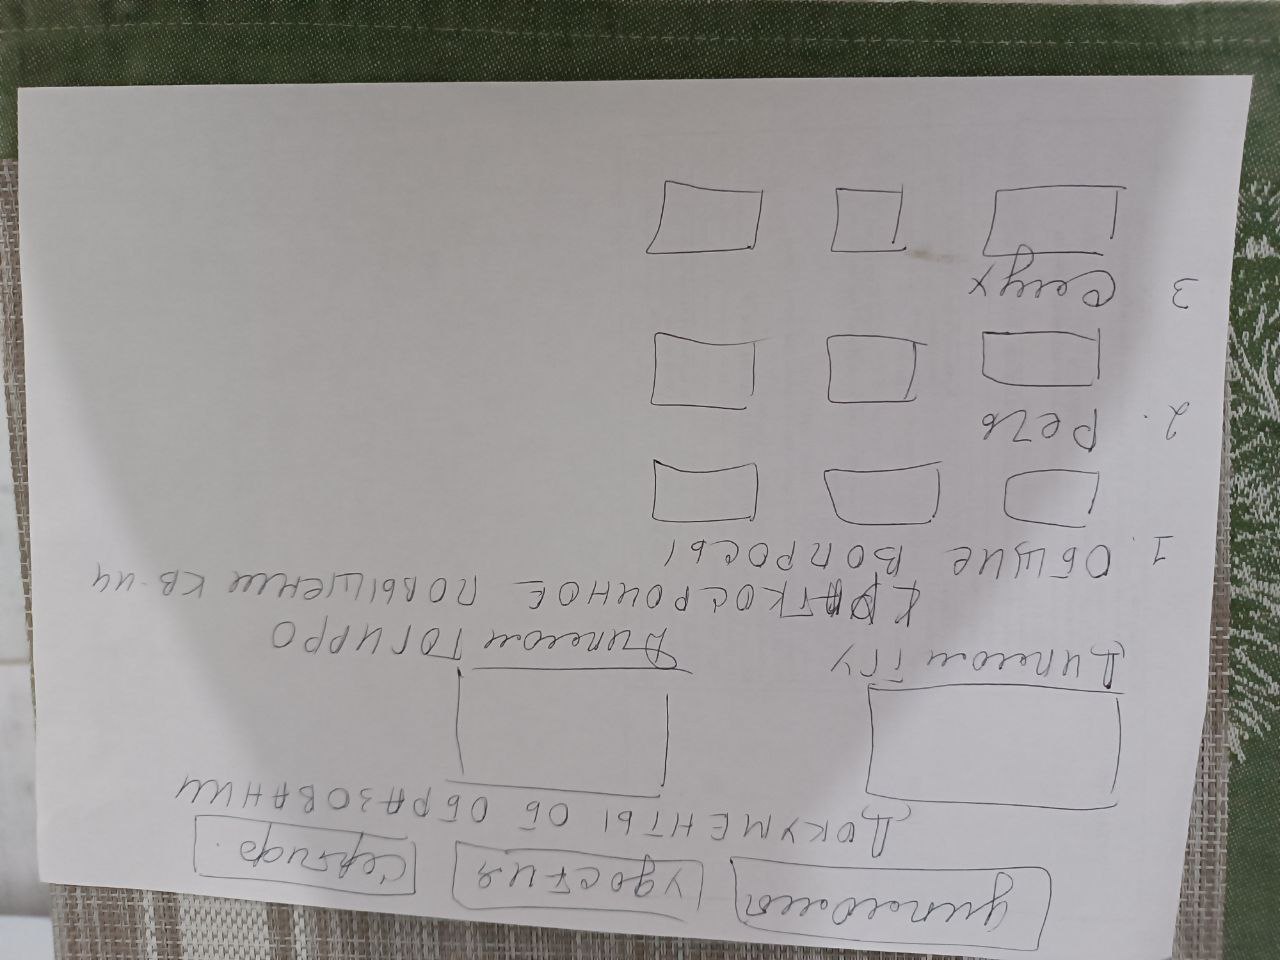 дипломы удостия сертиф.
ДОКУМЕНТЫ ОБ ОБРАЗОВАНИИ
Диплом ТГУ Диплом ТОГИРРО
КРАТКОСРОЧНОЕ ПОВЫШЕНИИ КВ-ИИ
1. ОБЩИЕ ВОПРОСЫ
2. Речь
3 Слух